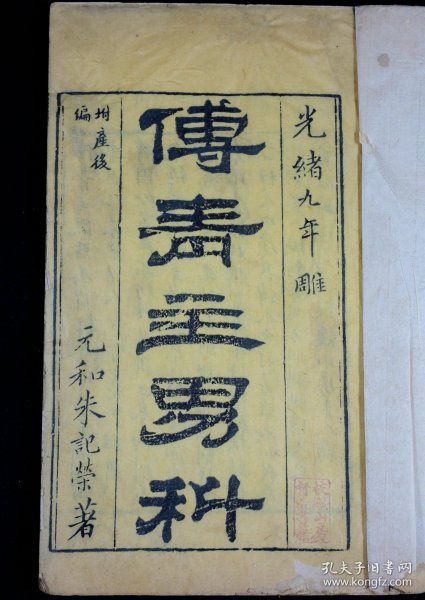 光緒九年雕
傅青主男科
坿產後
編
元和朱記榮著
孔夫子旧书网
www.kongfz.com